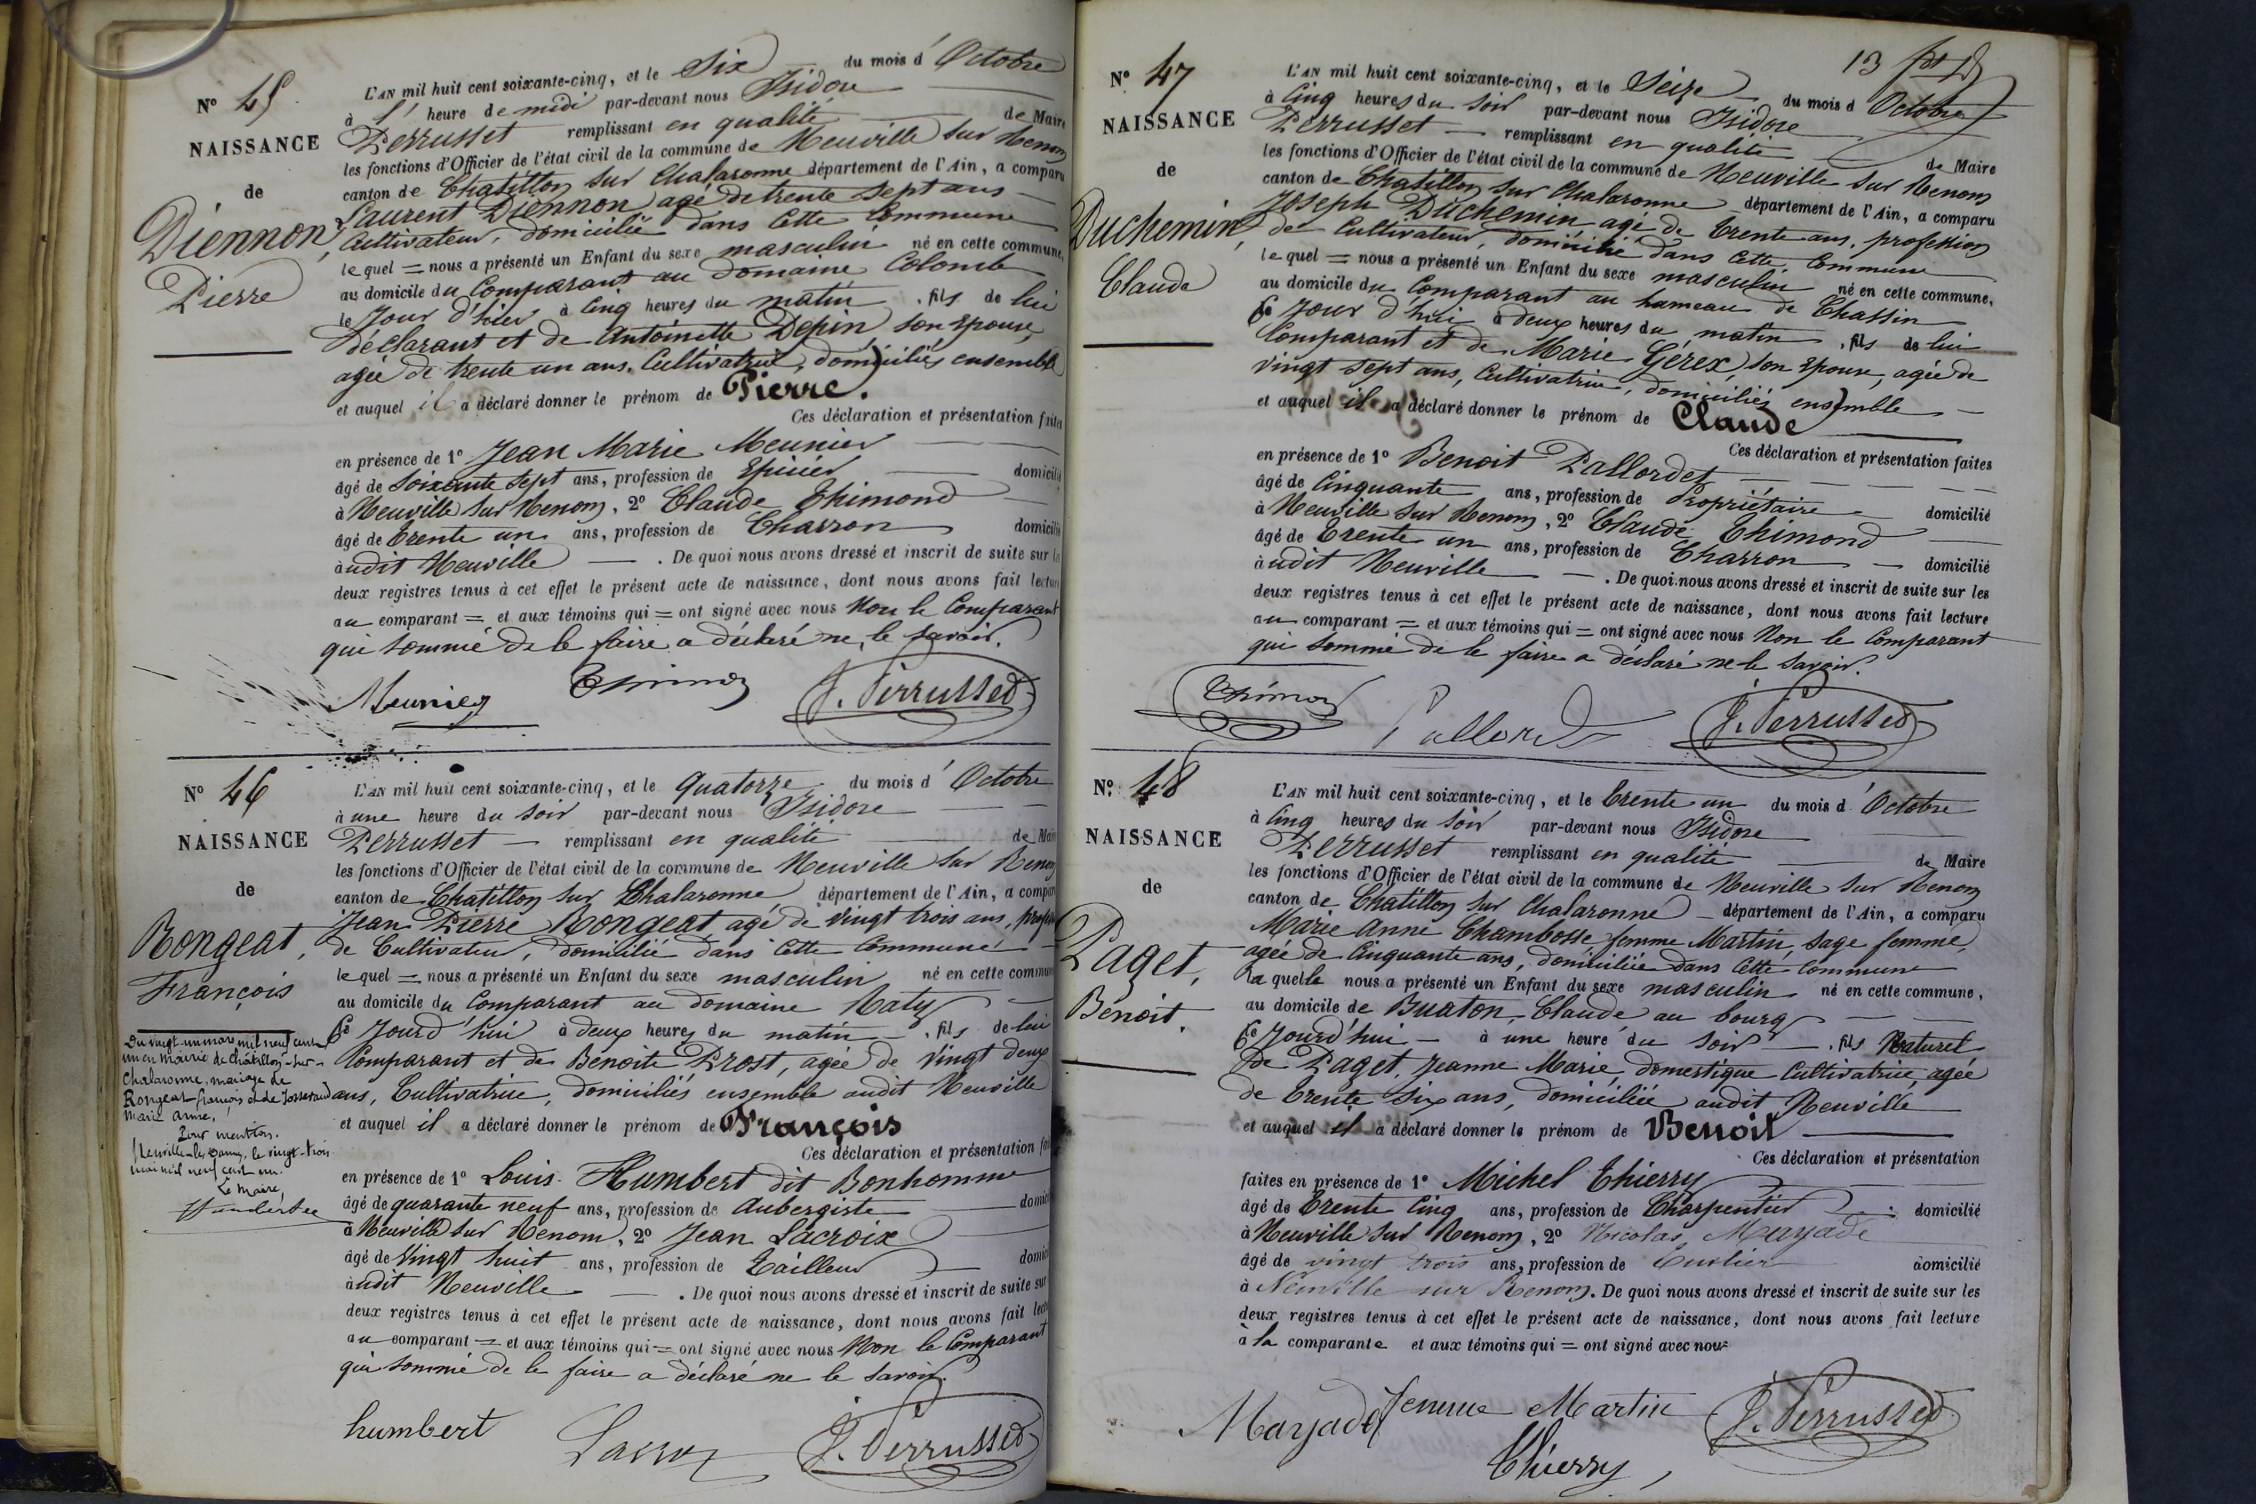 N° 45
NAISSANCE
de
Diennon,
Pierre
L'AN mil huit cent soixante-cinq, et le Six du mois d' Octobre
à l' heure de midi par-devant nous Isidore
Perrusset remplissant en qualité de Maire
les fonctions d'Officier de l'état civil de la commune de Neuville sur Renom
canton de Chatillon sur Chalaronne département de l'Ain, a comparu
Laurent Diennon agé de trente sept ans
Cultivateur, domicilié dans cette Commune
le quel = nous a présenté un Enfant du sexe masculin né en cette commune,
au domicile du Comparant au domaine Colomb
le Jour d'hier à Cinq heures du matin . fils de lui
déclarant et de Antoinette Depin, son Epouse,
agée de trente un ans. Cultivatrice, domiciliés ensemble
et auquel il a déclaré donner le prénom de Pierre.
Ces déclaration et présentation faites
en présence de 1° Jean Marie Meunier
âgé de soixante sept ans, profession de Epicier domicilié
à Neuville sur Renom, 2° Claude Thimond
âgé de trente un ans, profession de Charron domicilié
audit Neuville . De quoi nous avons dressé et inscrit de suite sur les
deux registres tenus à cet effet le présent acte de naissance, dont nous avons fait lecture
au comparant = et aux témoins qui = ont signé avec nous Non le Comparant
qui sommé de le faire a déclaré ne le savoir.
Meunier Thimon J. Perrusset
N° 46
NAISSANCE
de
Rongeat,
François
Du vingt un mars mil neuf cent
un en mairie de Châtillon-sur-
Chalaronne, mariage de
Rongeat françois et de Josserand
Marie Anne,
Pour mention.
Neuville-les-Dames, le vingt-trois
mars mil neuf cent un.
Le Maire,
L'AN mil huit cent soixante-cinq, et le Quatorze du mois d' Octobre
à une heure du soir par-devant nous Isidore
Perrusset remplissant en qualité de Maire
les fonctions d'Officier de l'état civil de la commune de Neuville sur Renom
canton de Chatillon sur Chalaronne département de l'Ain, a comparu
Jean Pierre Rongeat agé de vingt trois ans, profession
de Cultivateur, domicilié dans cette Commune
le quel = nous a présenté un Enfant du sexe masculin né en cette commune
au domicile du Comparant au domaine Naty
Ce Jourd'hui à deux heures du matin . fils de lui
Comparant et de Benoite Prost, agée de vingt deux
ans, Cultivatrice, domiciliés ensemble audit Neuville
et auquel il a déclaré donner le prénom de François
Ces déclaration et présentation faites
en présence de 1° Louis Humbert dit Bonhomme
âgé de quarante neuf ans, profession de Aubergiste domicilié
à Neuville sur Renom, 2° Jean Lacroix
âgé de vingt huit ans, profession de Tailleur domicilié
audit Neuville . De quoi nous avons dressé et inscrit de suite sur
deux registres tenus à cet effet le présent acte de naissance, dont nous avons fait lecture
au comparant = et aux témoins qui = ont signé avec nous Non le Comparant
qui sommé de le faire a déclaré ne le savoir.
humbert Lacroix J. Perrusset
13
N° 47
NAISSANCE
de
Duchemin,
Claude
L'AN mil huit cent soixante-cinq, et le Seize du mois d Octobre
à Cinq heures du soir par-devant nous Isidore
Perrusset remplissant en qualité de Maire
les fonctions d'Officier de l'état civil de la commune de Neuville sur Renom
canton de Chatillon sur Chalaronne département de l'Ain, a comparu
Joseph Duchemin agé de trente ans, profession
de Cultivateur, domicilié dans cette Commune
le quel = nous a présenté un Enfant du sexe masculin né en cette commune,
au domicile du Comparant au hameau de Chassin
Ce Jour d'hui à deux heures du matin , fils de lui
Comparant et de Marie Gérex, son Epouse, agée de
vingt sept ans, Cultivatrice, domiciliés ensemble
et auquel il a déclaré donner le prénom de Claude
Ces déclaration et présentation faites
en présence de 1° Benoit Pallordet
âgé de Cinquante ans, profession de Propriétaire domicilié
à Neuville sur Renom, 2° Claude Thimond
âgé de trente un ans, profession de Charron domicilié
audit Neuville . De quoi nous avons dressé et inscrit de suite sur les
deux registres tenus à cet effet le présent acte de naissance, dont nous avons fait lecture
au comparant = et aux témoins qui = ont signé avec nous Non le Comparant
qui sommé de le faire a déclaré ne le savoir.
Thimon Pallordet J. Perrusset
N° 48
NAISSANCE
de
Paget,
Benoit.
L'AN mil huit cent soixante-cinq, et le trente un du mois d Octobre
à Cinq heures du soir par-devant nous Isidore
Perrusset remplissant en qualité de Maire
les fonctions d'Officier de l'état civil de la commune de Neuville sur Renom
canton de Chatillon sur Chalaronne département de l'Ain, a comparu
Marie Anne Chambosse femme Martin, sage femme,
agée de Cinquante ans, domiciliée dans cette Commune
la quelle nous a présenté un Enfant du sexe masculin né en cette commune,
au domicile de Buaton, Claude au bourg
Ce Jourd'hui à une heure du soir . fils Naturel
de Paget, Jeanne Marie, domestique Cultivatrice, agée
de trente six ans, domiciliée audit Neuville
et auquel il a déclaré donner le prénom de Benoit
Ces déclaration et présentation
faites en présence de 1° Michel Thierry
âgé de trente Cinq ans, profession de Charpentier domicilié
à Neuville sur Renom, 2° Nicolas Mayade
âgé de vingt trois ans, profession de domicilié
à Neuville sur Renom. De quoi nous avons dressé et inscrit de suite sur les
deux registres tenus à cet effet le présent acte de naissance, dont nous avons fait lecture
à la comparante et aux témoins qui = ont signé avec nous
Mayade femme Martin J. Perrusset
Thierry